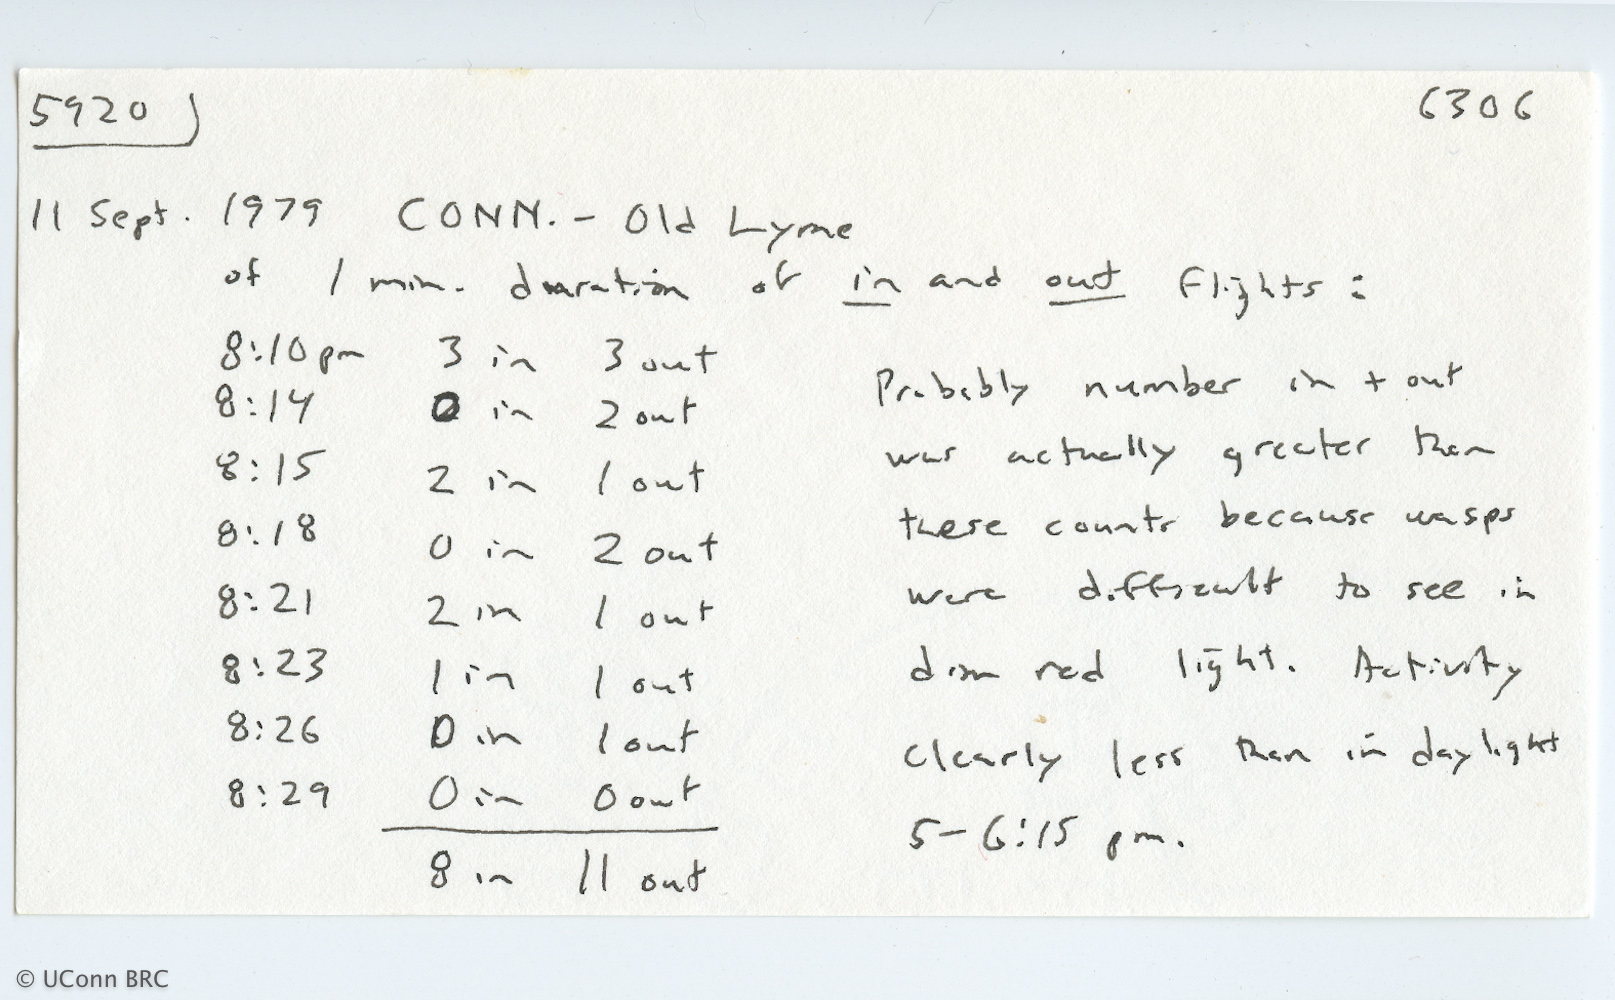 5920
6306
11 Sept. 1979 CONN. - Old Lyme
of 1 min. duration of in and out flights:
8:10 pm 3 in 3 out
8:14 0 in 2 out
8:15 2 in 1 out
8:18 0 in 2 out
8:21 2 in 1 out
8:23 1 in 1 out
8:26 0 in 1 out
8:29 0 in 0 out
8 in 11 out
Probably number in + out
was actually greater than
these counts because wasps
were difficult to see in
dim red light. Activity
clearly less than in daylight
5-6:15 pm.
© UConn BRC